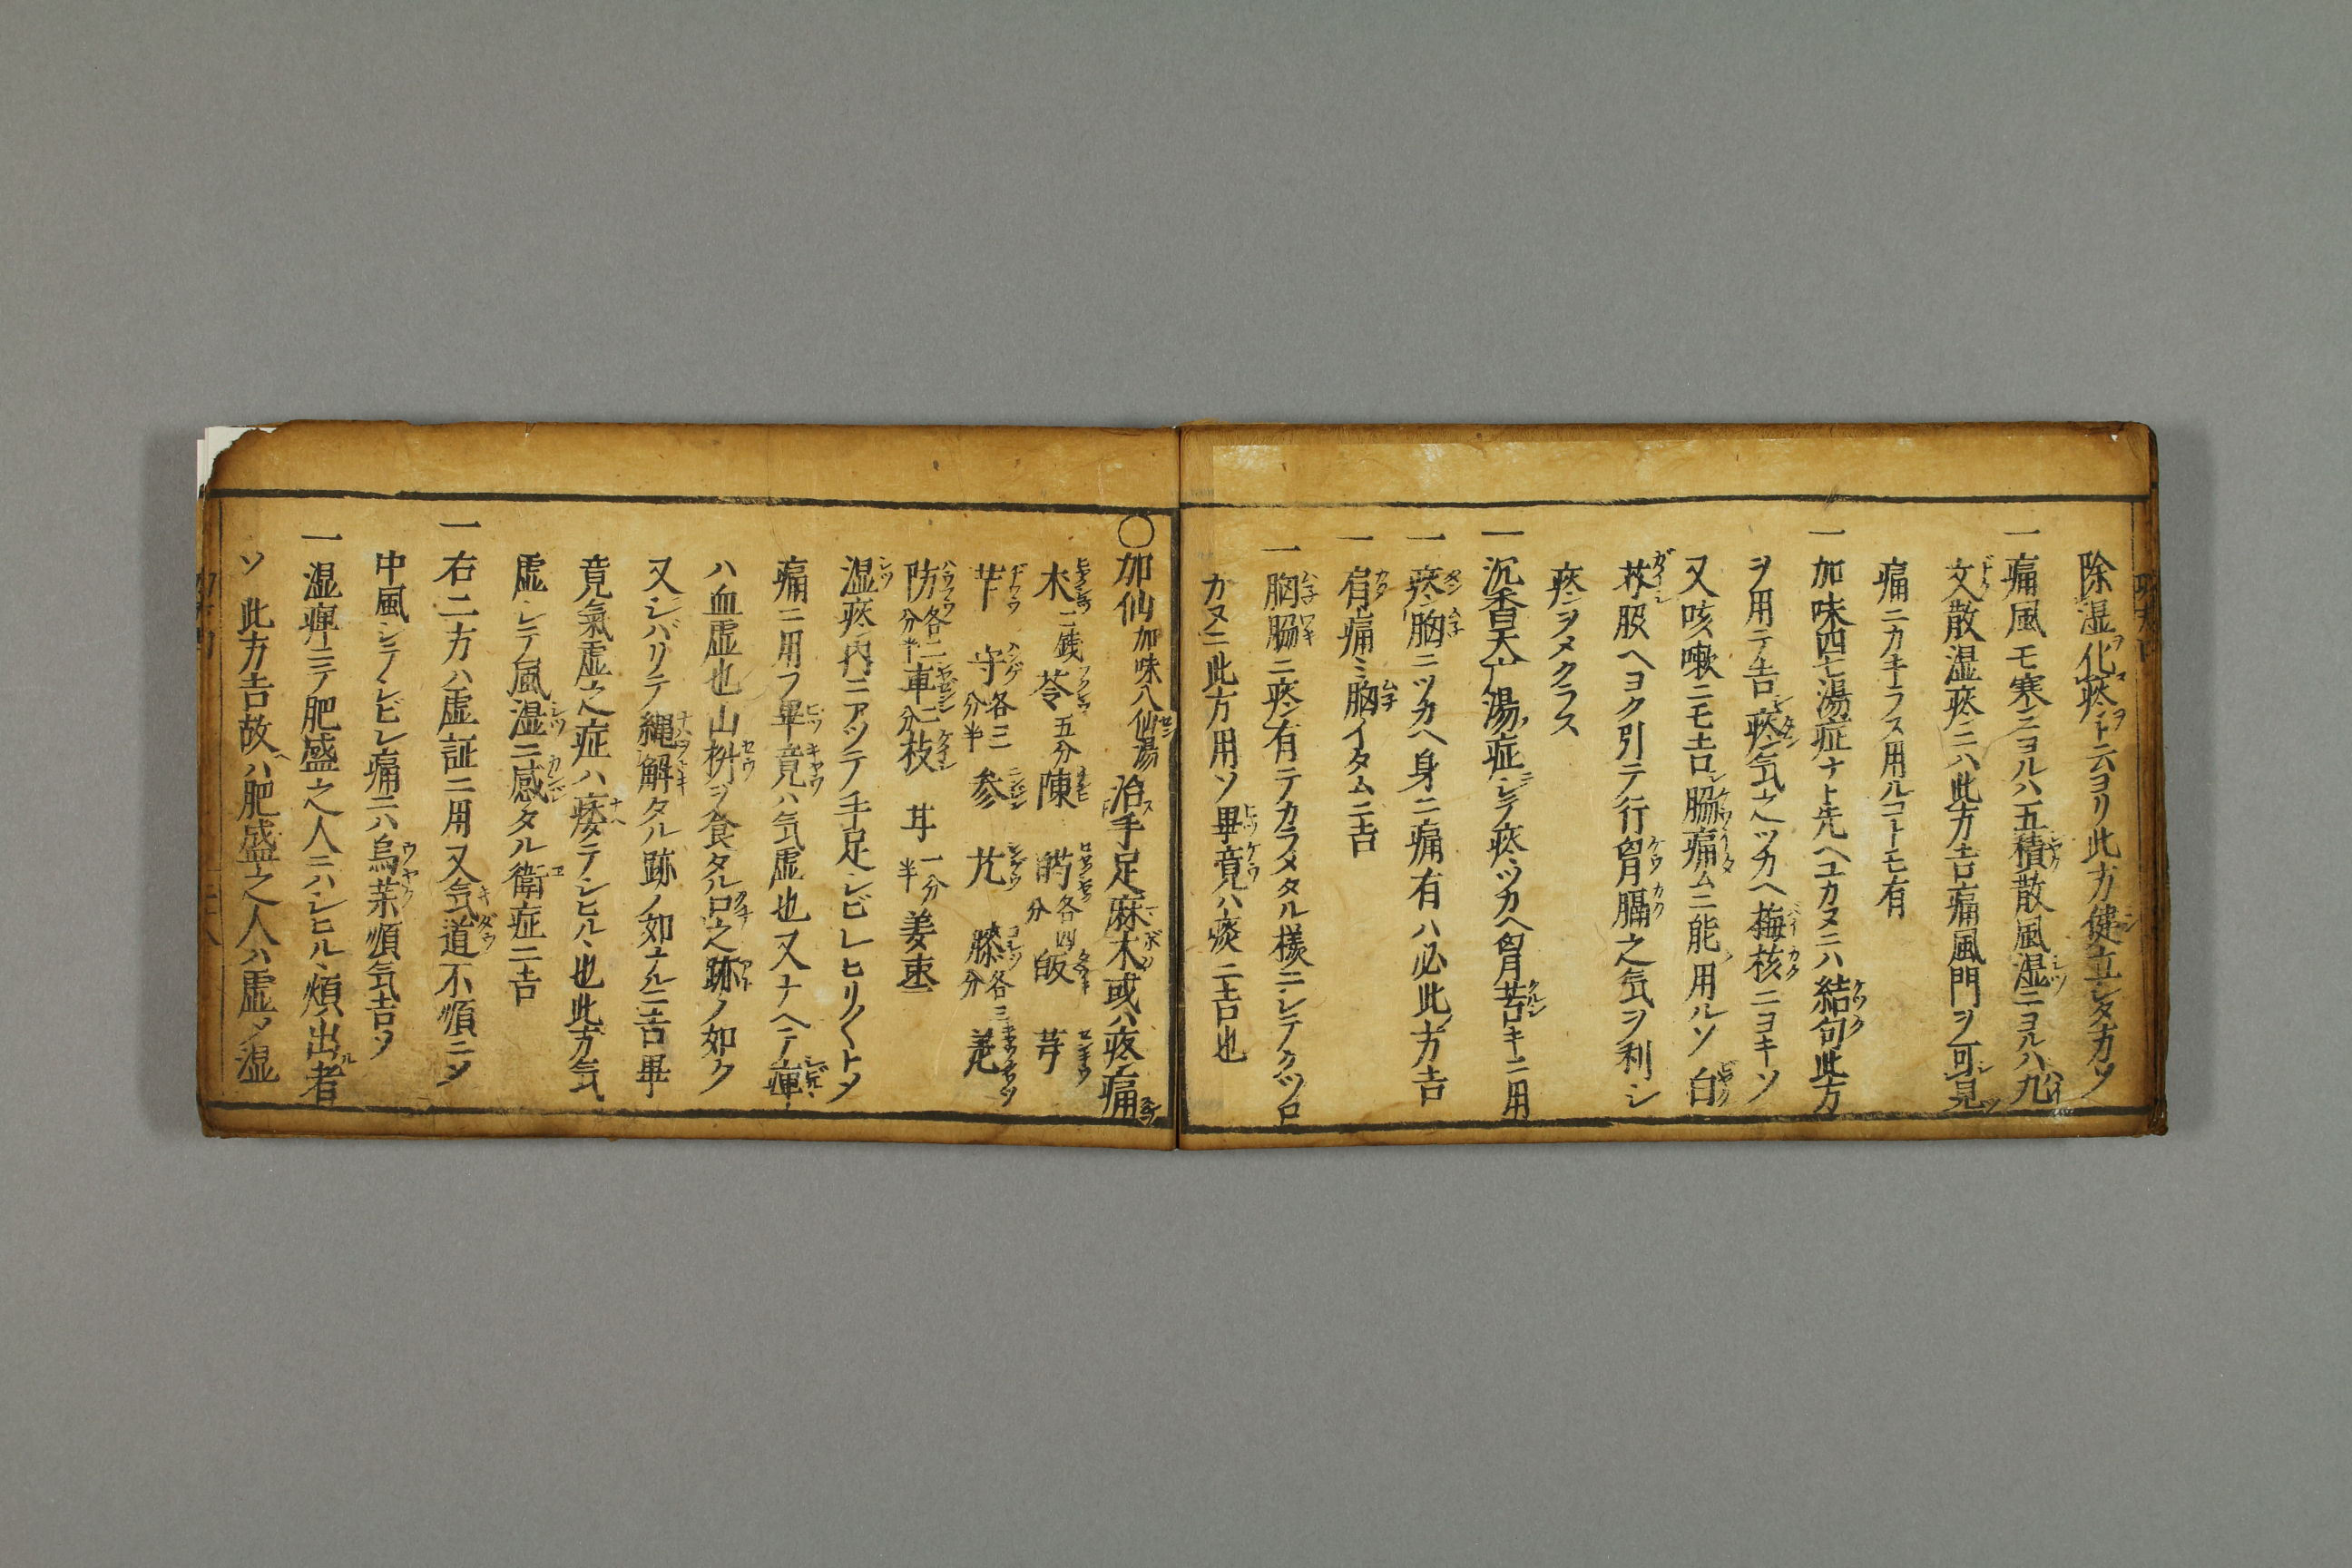 除湿化痰ト云ヨリ此方健立シタ方ソ
一痛風モ寒ニヨルハ五積散風湿ニヨルハ九
文散湿痰ニハ此方吉痛風門ヲ可見
痛ニカキラス用ルコトモ有
一加味四七湯症ナト先ヘユカヌニハ結句此方
ヲ用テ吉痰気之ツカヘ梅核ニヨキソ
又咳嗽ニモ吉脇痛ムニ能用ルソ白
芥服ヘヨク引テ行胷膈之気ヲ利シ
痰ヲメクラス
一沉香天亡湯症ニシテ痰ツカヘ胷苦キニ用
一痰胸ニツカヘ身ニ痛有ハ必此方吉
一肩痛ミ胸イタムニ吉
一胸脇ニ痰有テカラメタル様ニシテクツロ
カヌニ此方用ソ畢竟ハ痰ニ吉也
〇加仙加味八仙湯治手足麻木或ハ疼痛
木二銭苓五分陳芍各四分皈芎
芐守各三分半参尤膝各三分羗
防各二分半車二分枝耳一分半姜棗
湿痰内ニアツテ手足シビレヒリ〱トメ
痛ニ用フ畢竟ハ気虚也又ナヘテ痺
ハ血虚也山椒ヲ食タル口之跡ノ如ク
又シバリテ縄解タル跡ノ如ナルニ吉畢
竟氣虚之症ハ痿テシヒル丶也此方気
虚シテ風湿ニ感タル衛症ニ吉
一右二方ハ虚証ニ用又気道不順ニメ
中風シテシビレ痛ニハ烏茱順気吉ソ
一湿痺ニテ肥盛之人ニハシヒル丶煩出者
ソ此方吉故ハ肥盛之人ハ虚メ湿